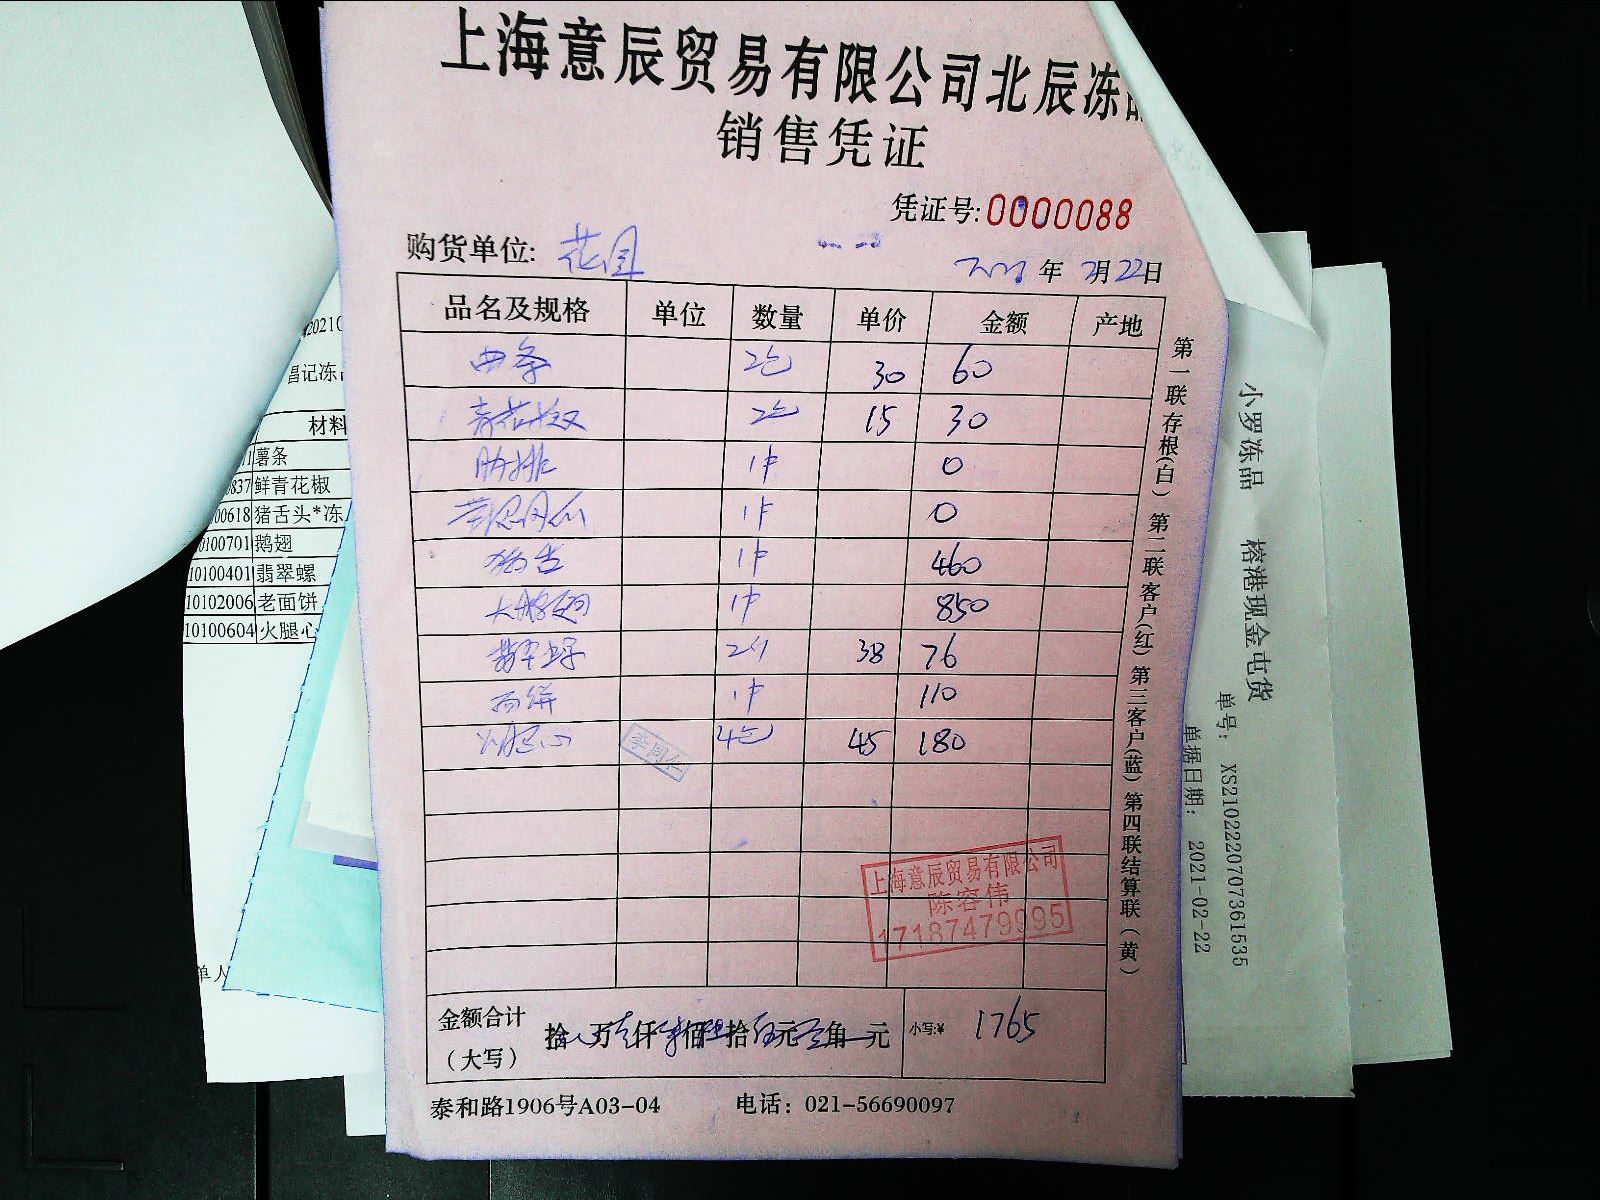 上海意辰贸易有限公司北辰冻品
销售凭证
凭证号:0000088
购货单位: 花园
2021年2月22日
品名及规格 单位 数量 单价 金额 产地
曲条 2包 30 60
青花椒 2包 15 30
肋排 1件 0
1件 0
猪舌 1件 460
大鹅翅 1件 850
翡翠螺 2 38 76
面饼 1件 110
火腿心 4包 45 180
李同仁
上海意辰贸易有限公司
陈容伟
17187479995
金额合计
(大写)
拾 万 仟 佰 拾 元 角 元 小写:¥ 1765
泰和路1906号A03-04 电话: 021-56690097
第一联存根(白) 第二联客户(红) 第三客户(蓝) 第四联结算联(黄)
20210
昌记冻品
材料
1薯条
837鲜青花椒
00618猪舌头*冻
0100701鹅翅
10100401翡翠螺
10102006老面饼
10100604火腿心
单人
小罗冻品 榕港现金屯货
单号: XS210222070736l535
单据日期: 2021-02-22